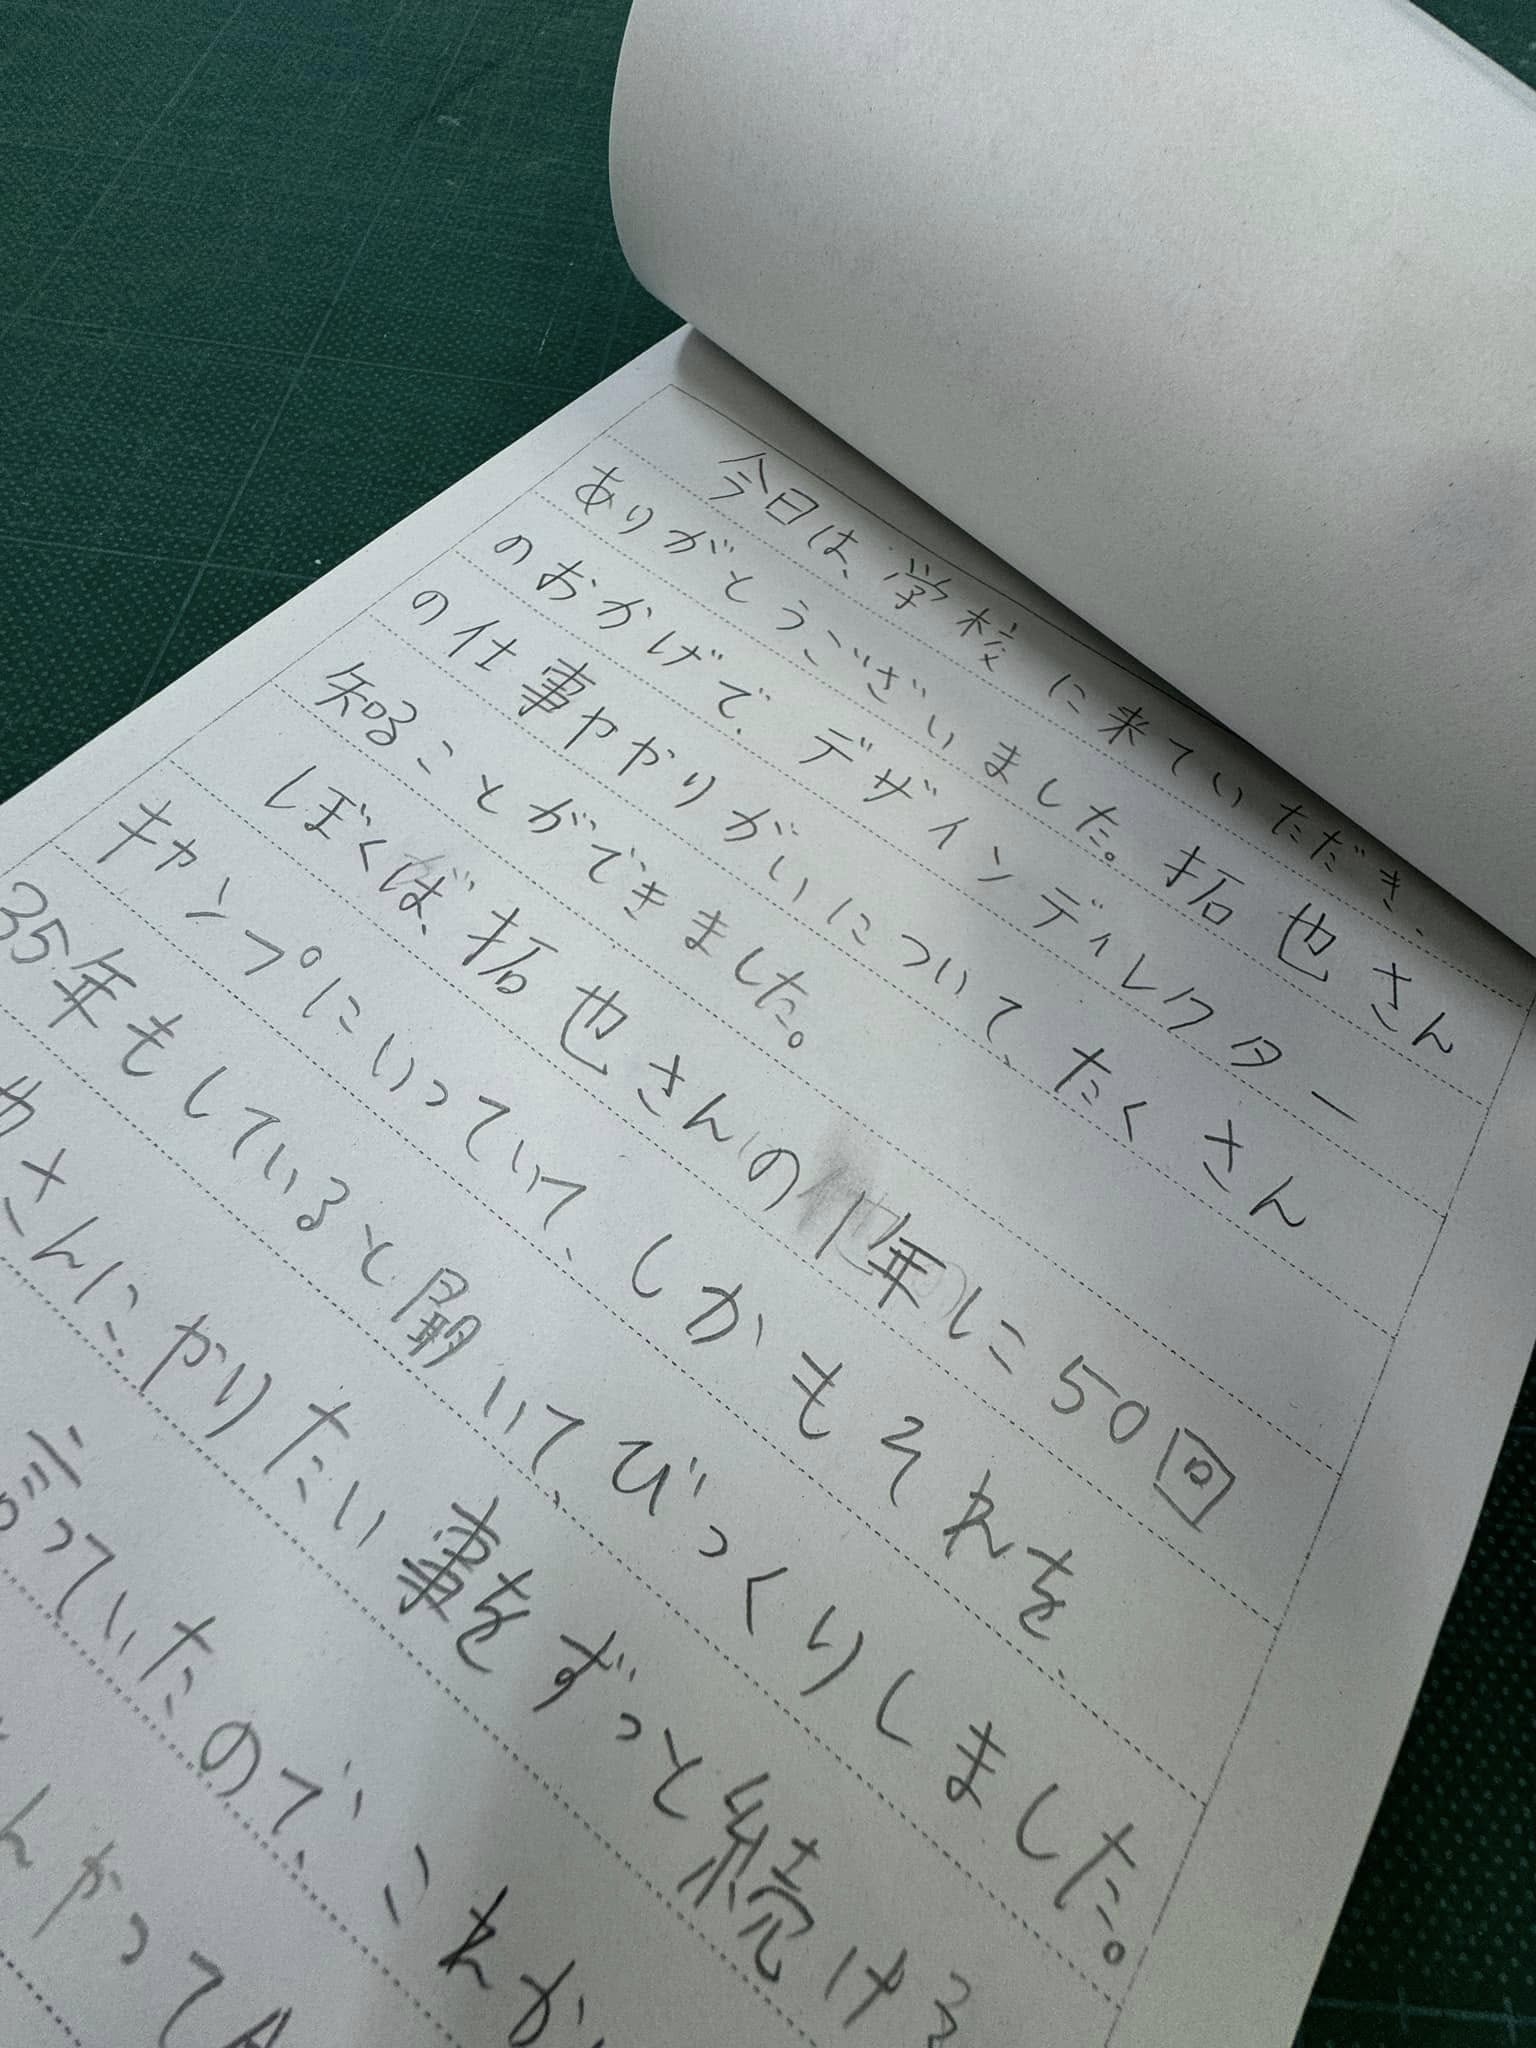 今日は、学校に来ていただき、
ありがとうございました。拓也さん
のおかげで、デザインディレクター
の仕事やりがいについて、たくさん
知ることができました。
ぼくは、拓也さんの1年に50回
キャンプにいっていて、しかもそれを、
35年もしていると聞いて、びっくりしました。
さんにやりたい事をずっと続ける
言っていたので、これか
んやって